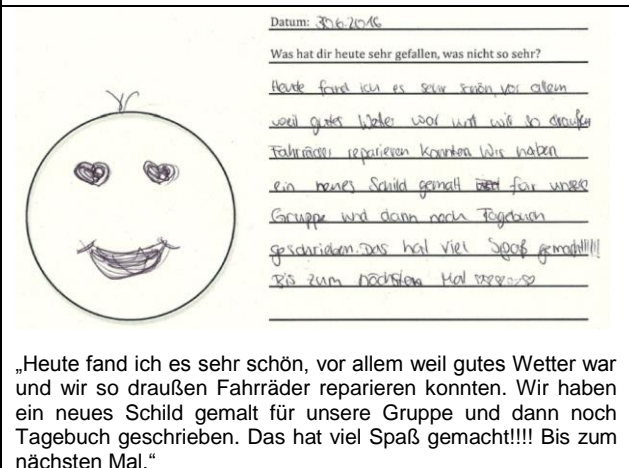 Datum: 30.6.2016
Was hat dir heute sehr gefallen, was nicht so sehr?
Heute fand ich es sehr schön, vor allem
weil gutes Wetter war und wir so draußen
Fahrräder reparieren konnten. Wir haben
ein neues Schild gemalt für unsere
Gruppe und dann noch Tagebuch
geschrieben. Das hat viel Spaß gemacht!!!!!
Bis zum nächsten Mal
„Heute fand ich es sehr schön, vor allem weil gutes Wetter war
und wir so draußen Fahrräder reparieren konnten. Wir haben
ein neues Schild gemalt für unsere Gruppe und dann noch
Tagebuch geschrieben. Das hat viel Spaß gemacht!!!! Bis zum
nächsten Mal.“